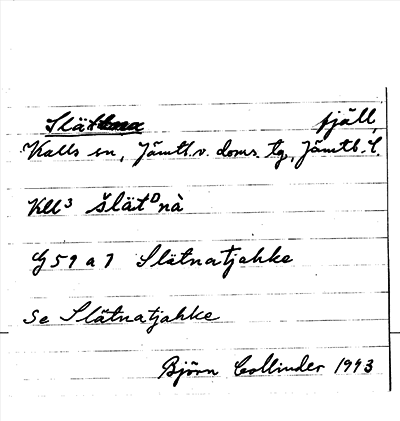 Slätna fjäll,
Kalls sn, Jämtl.v. doms. tg, Jämtl. l.
Kll³ šlätᴰnà
G 59 a 7 Slätnatjahke
Se Slätnatjahke
Björn Collinder 1943